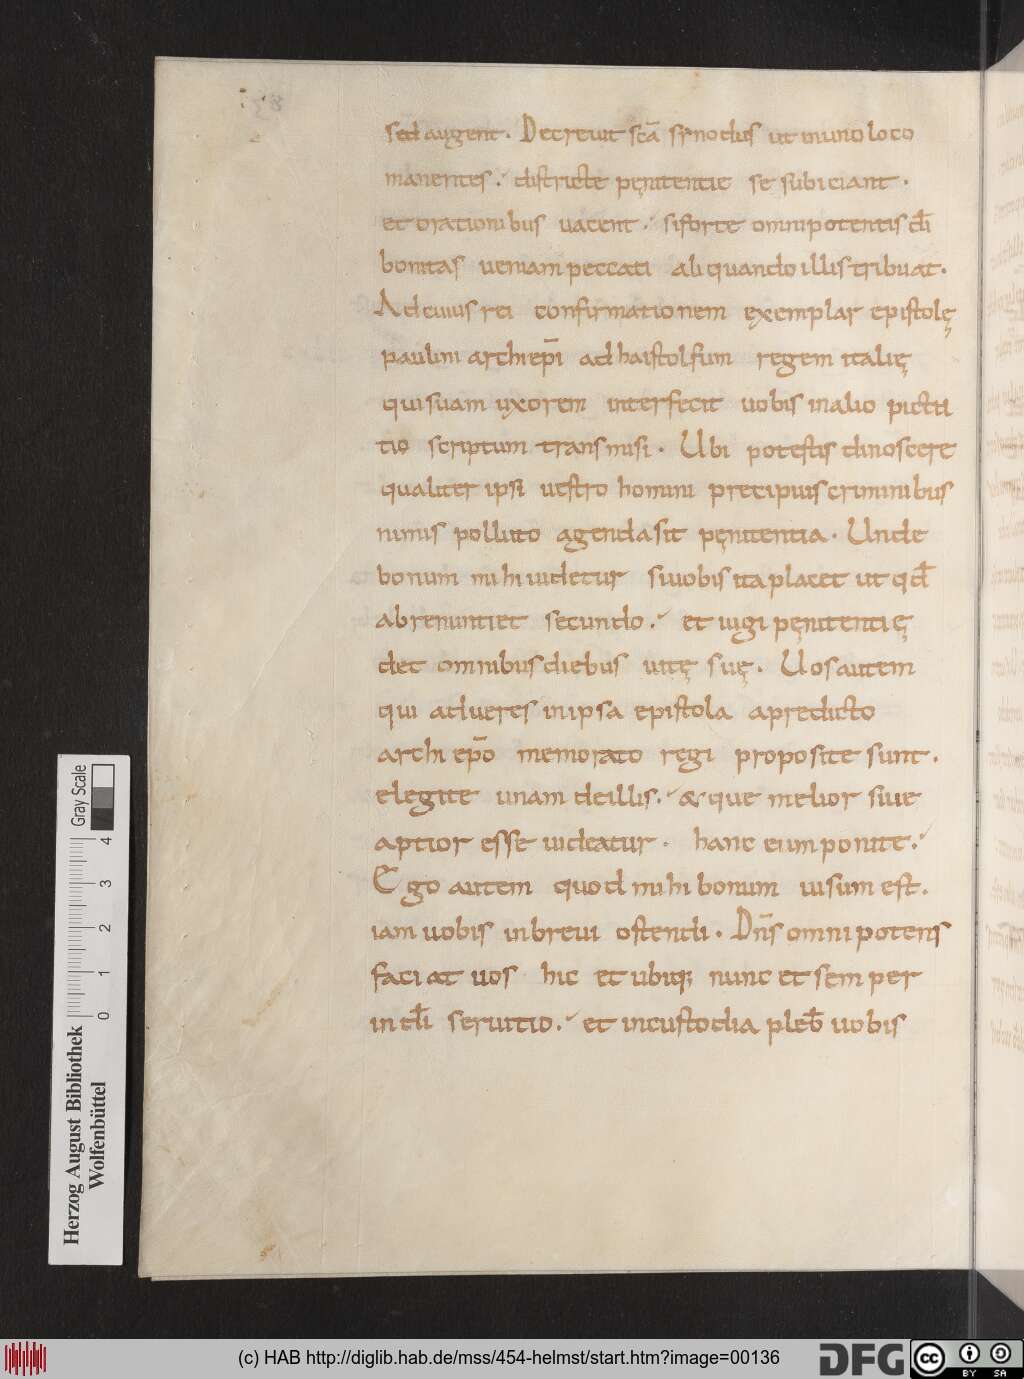 sed augent. Decreuit scā synodus ut inuno loco
manentes. districte pęnitentie se subiciant.
et orationibus uacent. siforte omnipotentis dī
bonitas ueniam peccati aliquando illis tribuat.
Ad cuius rei confirmationem exemplar epistolę
paulini archiep̄i ad haistolfum regem italię
qui suam uxorem interfecit uobis in alio pictii
tio scriptum transmisi. Ubi potestis dinoscere
qualiter ipsi uestro homini precipuis criminibus
nimis polluto agenda sit pęnitentia. Unde
bonum mihi uidetur si uobis ita placet ut qđ
abrenuntiet secundo. et iugi pęnitentię
det omnibus diebus uitę suę. Uos autem
qui aduerēs in ipsa epistola a predicto
archi ep̄o memorato regi proposite sunt.
elegite unam de illis. & que melior siue
aptior esse uideatur. hanc ei imponite.
Ego autem quod mihi bonum uisum est.
iam uobis in breui ostendi. Dn̄s omnipotens
faciat uos hic et ubiq; nunc et semper
in dī seruitio. et in custodia pleb̄ uobis
Gray Scale
0 1 2 3 4
Herzog August Bibliothek
Wolfenbüttel
(c) HAB http://diglib.hab.de/mss/454-helmst/start.htm?image=00136
DFG
cc BY SA